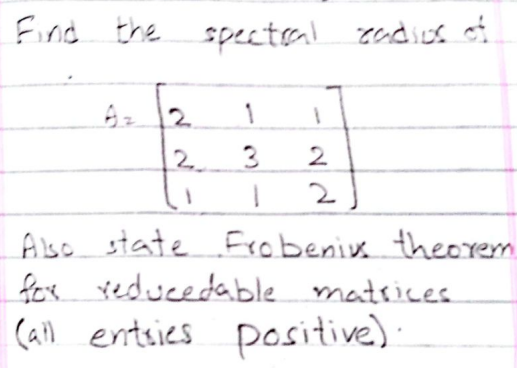 Find the spectral radius of
A = [2 1 1
2 3 2
1 1 2]
Also state Frobenius theorem
for reducedable matrices
(all entries positive).